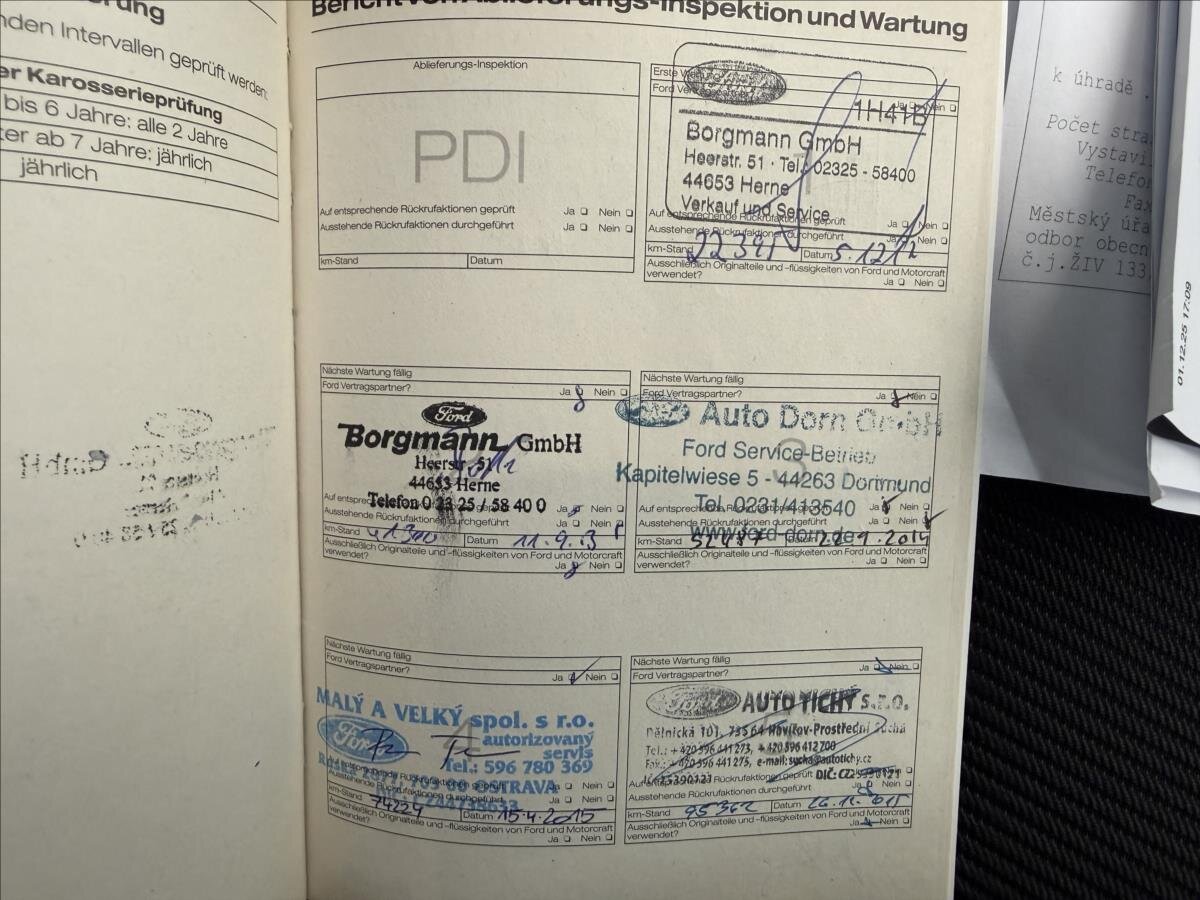 nden Intervallen geprüft werden:
er Karosserieprüfung
bis 6 Jahre: alle 2 Jahre
ter ab 7 Jahre: jährlich
jährlich
Bericht von Ablieferungs-Inspektion und Wartung
Ablieferungs-Inspektion
PDI
Auf entsprechende Rückrufaktionen geprüft Ja Nein
Ausstehende Rückrufaktionen durchgeführt Ja Nein
km-Stand Datum
Ford
1H41B
Ja Nein
Borgmann GmbH
Heerstr. 51 · Tel. 02325 - 58400
44653 Herne
Verkauf und Service
Auf entsprechende Rückrufaktionen geprüft Ja Nein
Ausstehende Rückrufaktionen durchgeführt Ja Nein
km-Stand Datum 5.12.12
Ausschließlich Originalteile und -flüssigkeiten von Ford und Motorcraft
verwendet? Ja Nein
Nächste Wartung fällig
Ford Vertragspartner? Ja Nein
Ford
Borgmann GmbH
Heerstr. 51
44653 Herne
Telefon 0 23 25 / 58 40 0
Ausstehende Rückrufaktionen durchgeführt Ja Nein
km-Stand Datum 11.9.13
Ausschließlich Originalteile und -flüssigkeiten von Ford und Motorcraft
verwendet? Ja Nein
Nächste Wartung fällig
Ford Vertragspartner? Ja Nein
Auto Dorn GmbH
Ford Service-Betrieb
Kapitelwiese 5 - 44263 Dortmund
Tel. 0231/413540
Ausstehende Rückrufaktionen durchgeführt Ja Nein
www.ford-dorn.de
km-Stand Datum 22.9.2014
Ausschließlich Originalteile und -flüssigkeiten von Ford und Motorcraft
verwendet? Ja Nein
Nächste Wartung fällig
Ford Vertragspartner? Ja Nein
MALÝ A VELKÝ spol. s r.o.
Ford
autorizovaný
servis
Tel.: 596 780 369
709 00 OSTRAVA
Ausstehende Rückrufaktionen durchgeführt Ja Nein
km-Stand 74224 Datum 15.4.2015
Ausschließlich Originalteile und -flüssigkeiten von Ford und Motorcraft
verwendet? Ja Nein
Nächste Wartung fällig
Ford Vertragspartner? Ja Nein
Ford AUTO TICHÝ s.r.o.
Dělnická 101, 73564 Havířov-Prostřední Suchá
Tel.: +420 596 441 273, +420 596 412 700
Fax.: +420 596 441 273, e-mail: sucha@autotichy.cz
Rückrufaktionen geprüft
Ausstehende Rückrufaktionen durchgeführt
km-Stand 95362 Datum
Ausschließlich Originalteile und -flüssigkeiten von Ford und Motorcraft
verwendet? Ja Nein
k úhradě
Počet stra
Vystavi
Telefo
Fax
Městský úřa
odbor obecn
č.j.ŽIV 133
01.12.25 17:09